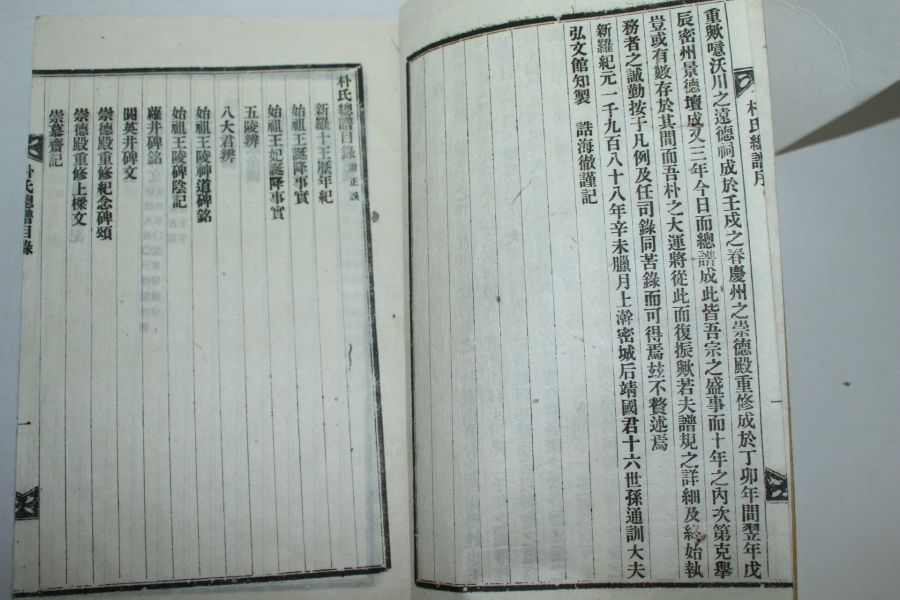 朴氏總譜序
重歟噫沃川之遠德祠成於壬戌之春慶州之崇德殿重修成於丁卯年間翌年戊
辰密州景德壇成又三年今日而總譜成此皆吾宗之盛事而十年之內次第克舉
豈或有數存於其間而吾朴之大運將從此而復振歟若夫譜規之詳細及終始執
務者之誠勤按于凡例及任司錄同苦錄而可得焉玆不贅述焉
新羅紀元一千九百八十八年辛未臘月上澣密城后靖國君十六世孫通訓大夫
弘文館知製 誥海徹謹記
朴氏總譜目錄 附正誤
新羅十王歷年紀
始祖王誕降事實
始祖王妃誕降事實
五陵辨
八大君辨
始祖王陵神道碑銘
始祖王陵碑陰記
蘿井碑銘
閼英井碑文
崇德殿重修紀念碑頌
崇德殿重修上樑文
崇慕齋記
朴氏總譜目錄
一